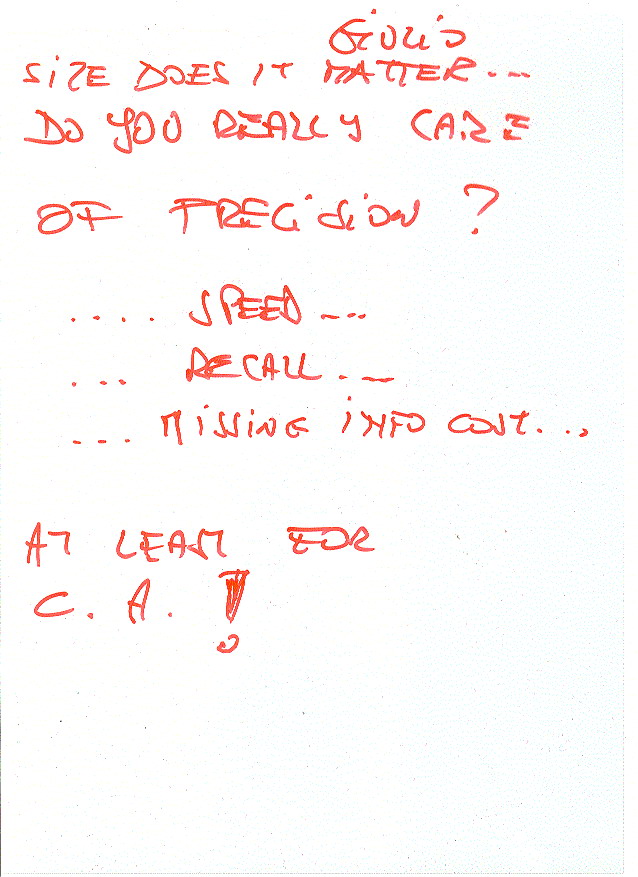 GiULiO
SIZE DOES IT MATTER...
DO YOU REALLY CARE
OF PRECISION ?
.... SPEED ...
... RECALL ...
... MISSING INFO COST...
AT LEAST FOR
C. A. !